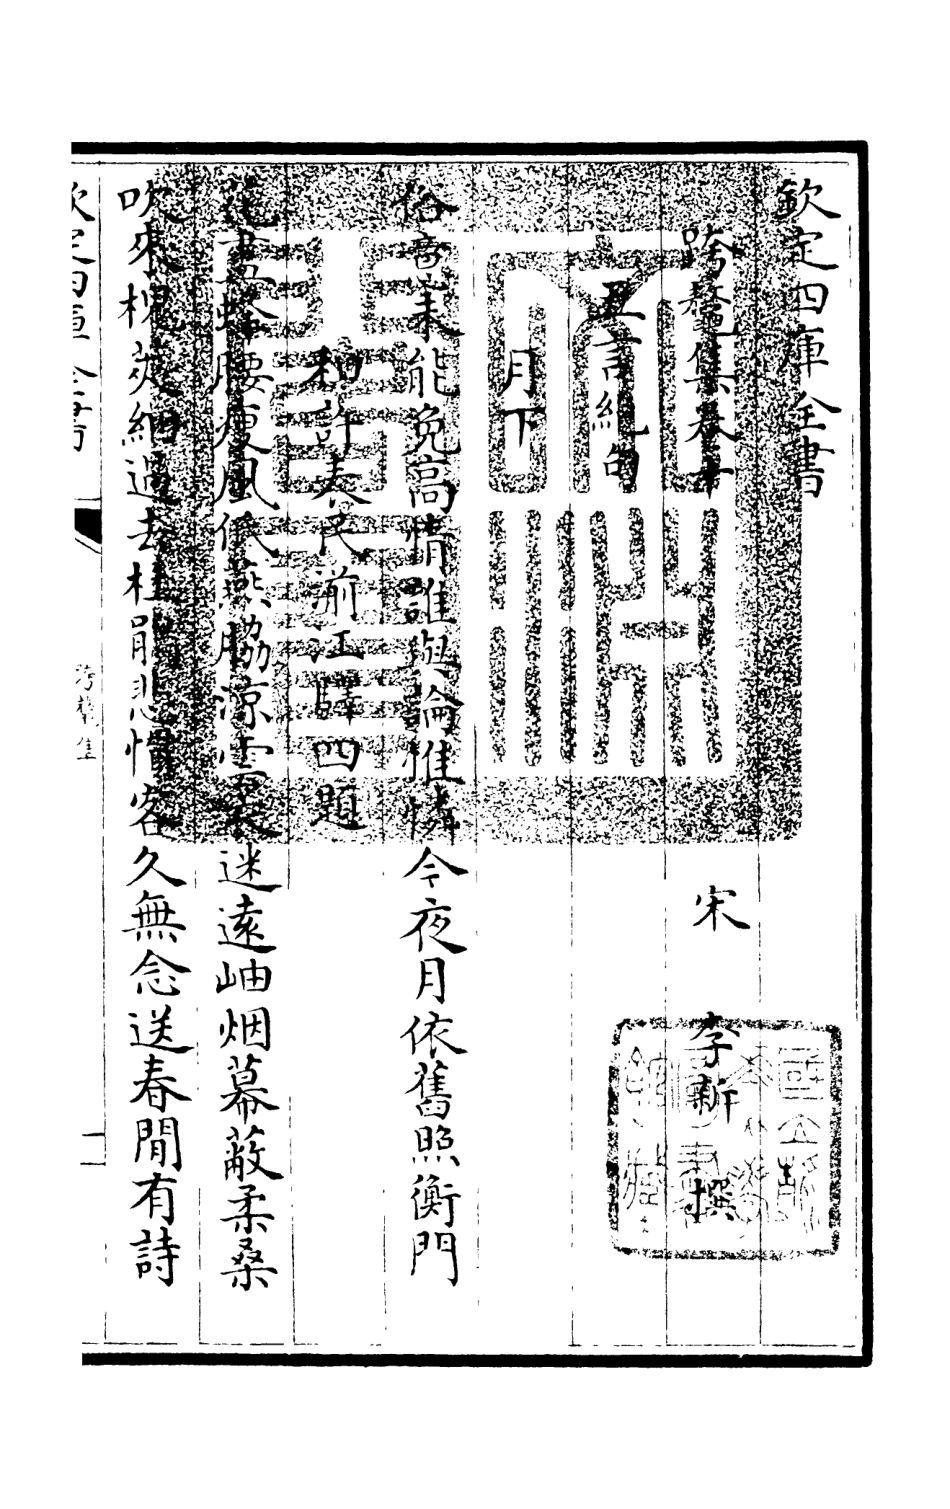 欽定四庫全書
跨鼇集卷十
宋 李新 撰
五言絶句
月下
俗商未能免高情誰與論惟憐今夜月依舊照衡門
和許春民前江驛四題
盡蜂腰瘦風低燕脇涼雲裘迷遠岫烟幕蔽柔桑
吹來榆莢細過去杜鵑悲惜客久無念送春間有詩
欽定四庫全書
跨鼇集
一